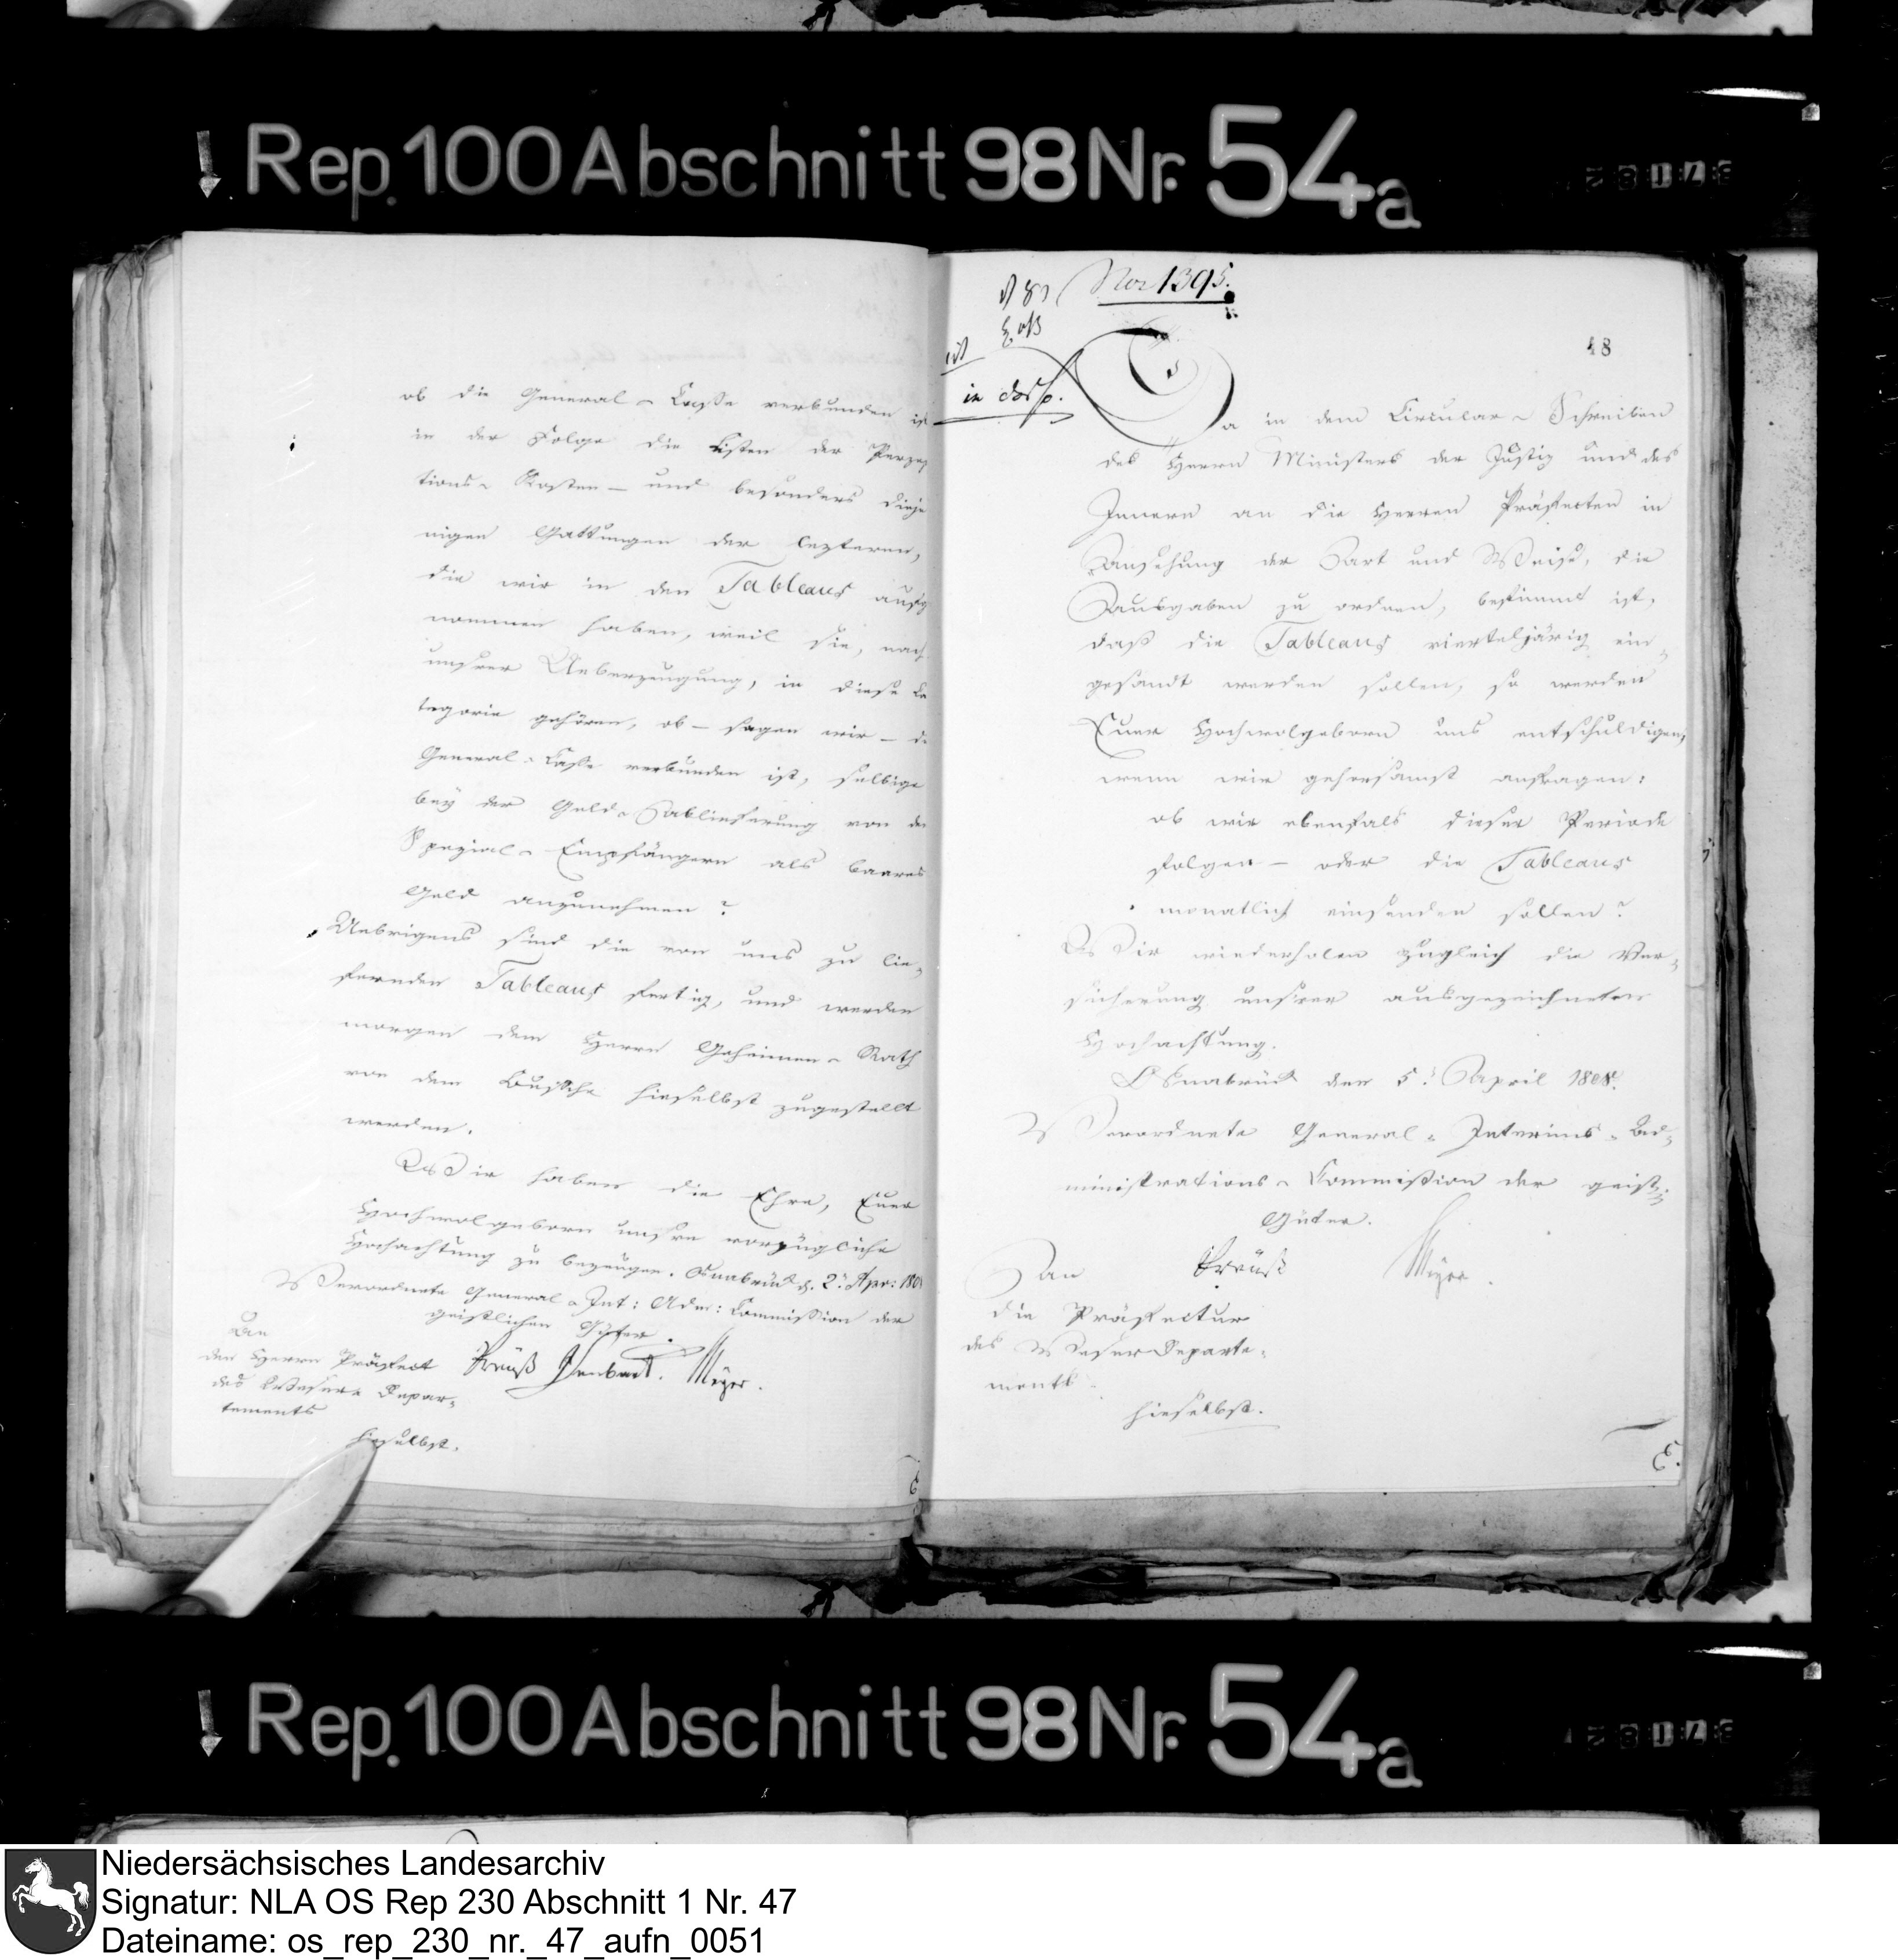 Rep. 100 Abschnitt 98 Nr. 54a
ob die General-Casse verbunden ist
in der Folge die Listen der Perzep
tions-Kosten – und besonders dieje
nigen Gattungen der lezteren,
die wir in den Tableaus aufge
nommen haben, weil sie, nach
unsrer Ueberzeugung, in diese Ca
tegorie gehören, ob – sagen wir – di
General-Casse verbunden ist, selbige
bey der Geld-Ablieferung von den
Spezial-Empfängern als baares
Geld anzunehmen?
Uebrigens sind die von uns zu lie-
fernden Tableaus fertig, und werden
morgen dem Herrn Geheimen-Rath
von dem Bussche hieselbst zugestellt
werden.
Wir haben die Ehre, Euer
Hochwolgeborn unsre vorzügliche
Hochachtung zu bezeugen. Osnabrück d. 2t. Apr: 180
Verordnete General-Int: Adm: Commission der
geistlichen Güter.
An
den Herrn Präfect
des Weser-Depar-
tements
hieselbst.
Preuß Meyer.
Nor 1395.
48
in dorso.
Da in dem Circular-Schreiben
des Herrn Ministers der Justiz und des
Innern an die Herren Präfecten in
Ansehung der Art und Weise, die
Ausgaben zu ordnen, bestimmt ist,
daß die Tableaus vierteljärig ein-
gesandt werden sollen, so werden
Euer Hochwolgeborn uns entschuldigen,
wenn wir gehorsamst anfragen:
ob wir ebenfals dieser Periode
folgen – oder die Tableaus
monatlich einsenden sollen?
Wir wiederholen zugleich die Ver-
sicherung unsrer ausgezeichneten
Hochachtung.
Osnabrück den 5t. April 1808.
Verordnete General-Interims-Ad-
ministrations-Commission der geistl:
Güter.
Preuß Meyer.
An
die Präfectur
des Weser Departe-
ments
hieselbst.
Rep. 100 Abschnitt 98 Nr. 54a
Niedersächsisches Landesarchiv
Signatur: NLA OS Rep 230 Abschnitt 1 Nr. 47
Dateiname: os_rep_230_nr._47_aufn_0051